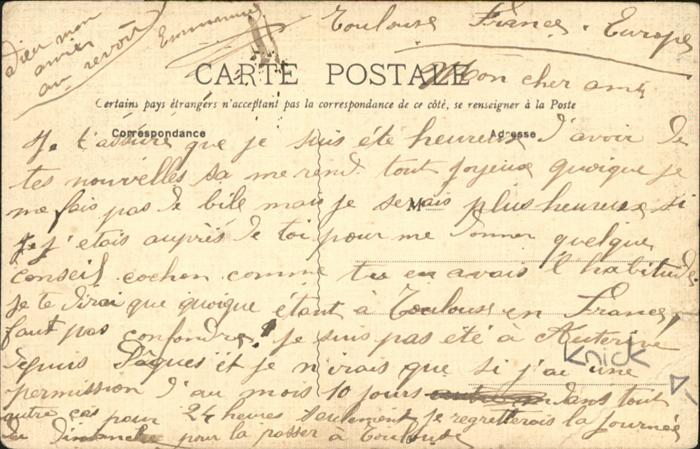 Toulouse France. Europe
Dieu mon
amien
au revoir
Emmanuel
CARTE POSTALE
Mon cher ami
Certains pays étrangers n'acceptant pas la correspondance de ce côté, se renseigner à la Poste
Correspondance
Adresse
Je t'assure que je suis été heureuse d'avoir de
tes nouvelles sa me rend tout joyeux quoique je
me fais pas de bile mais je serais plus heureuse si
M
je j'étais auprès de toi pour me donner quelque
conseil cochon comme tu en avais l'habitude
je te dirai que quoique étant à Toulouse en France,
faut pas confondre! je suis pas été à Auterive
depuis Pâques et je n'irais que si j'ai une
Knick
permission d'au mois 10 jours dans tout
autre cas pour 24 heures seulement je regretterois la journée
du Dimanche pour la passer à Toulouse